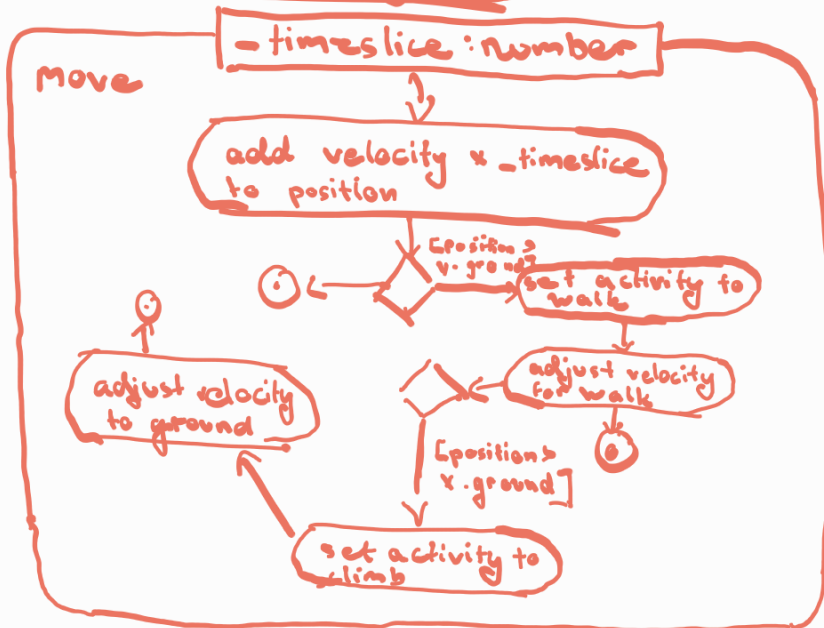 _timeslice : number
move
add velocity x _timeslice
to position
[position >
y.ground]
set activity to
walk
adjust velocity
for walk
adjust velocity
to ground
[position >
x.ground]
set activity to
climb